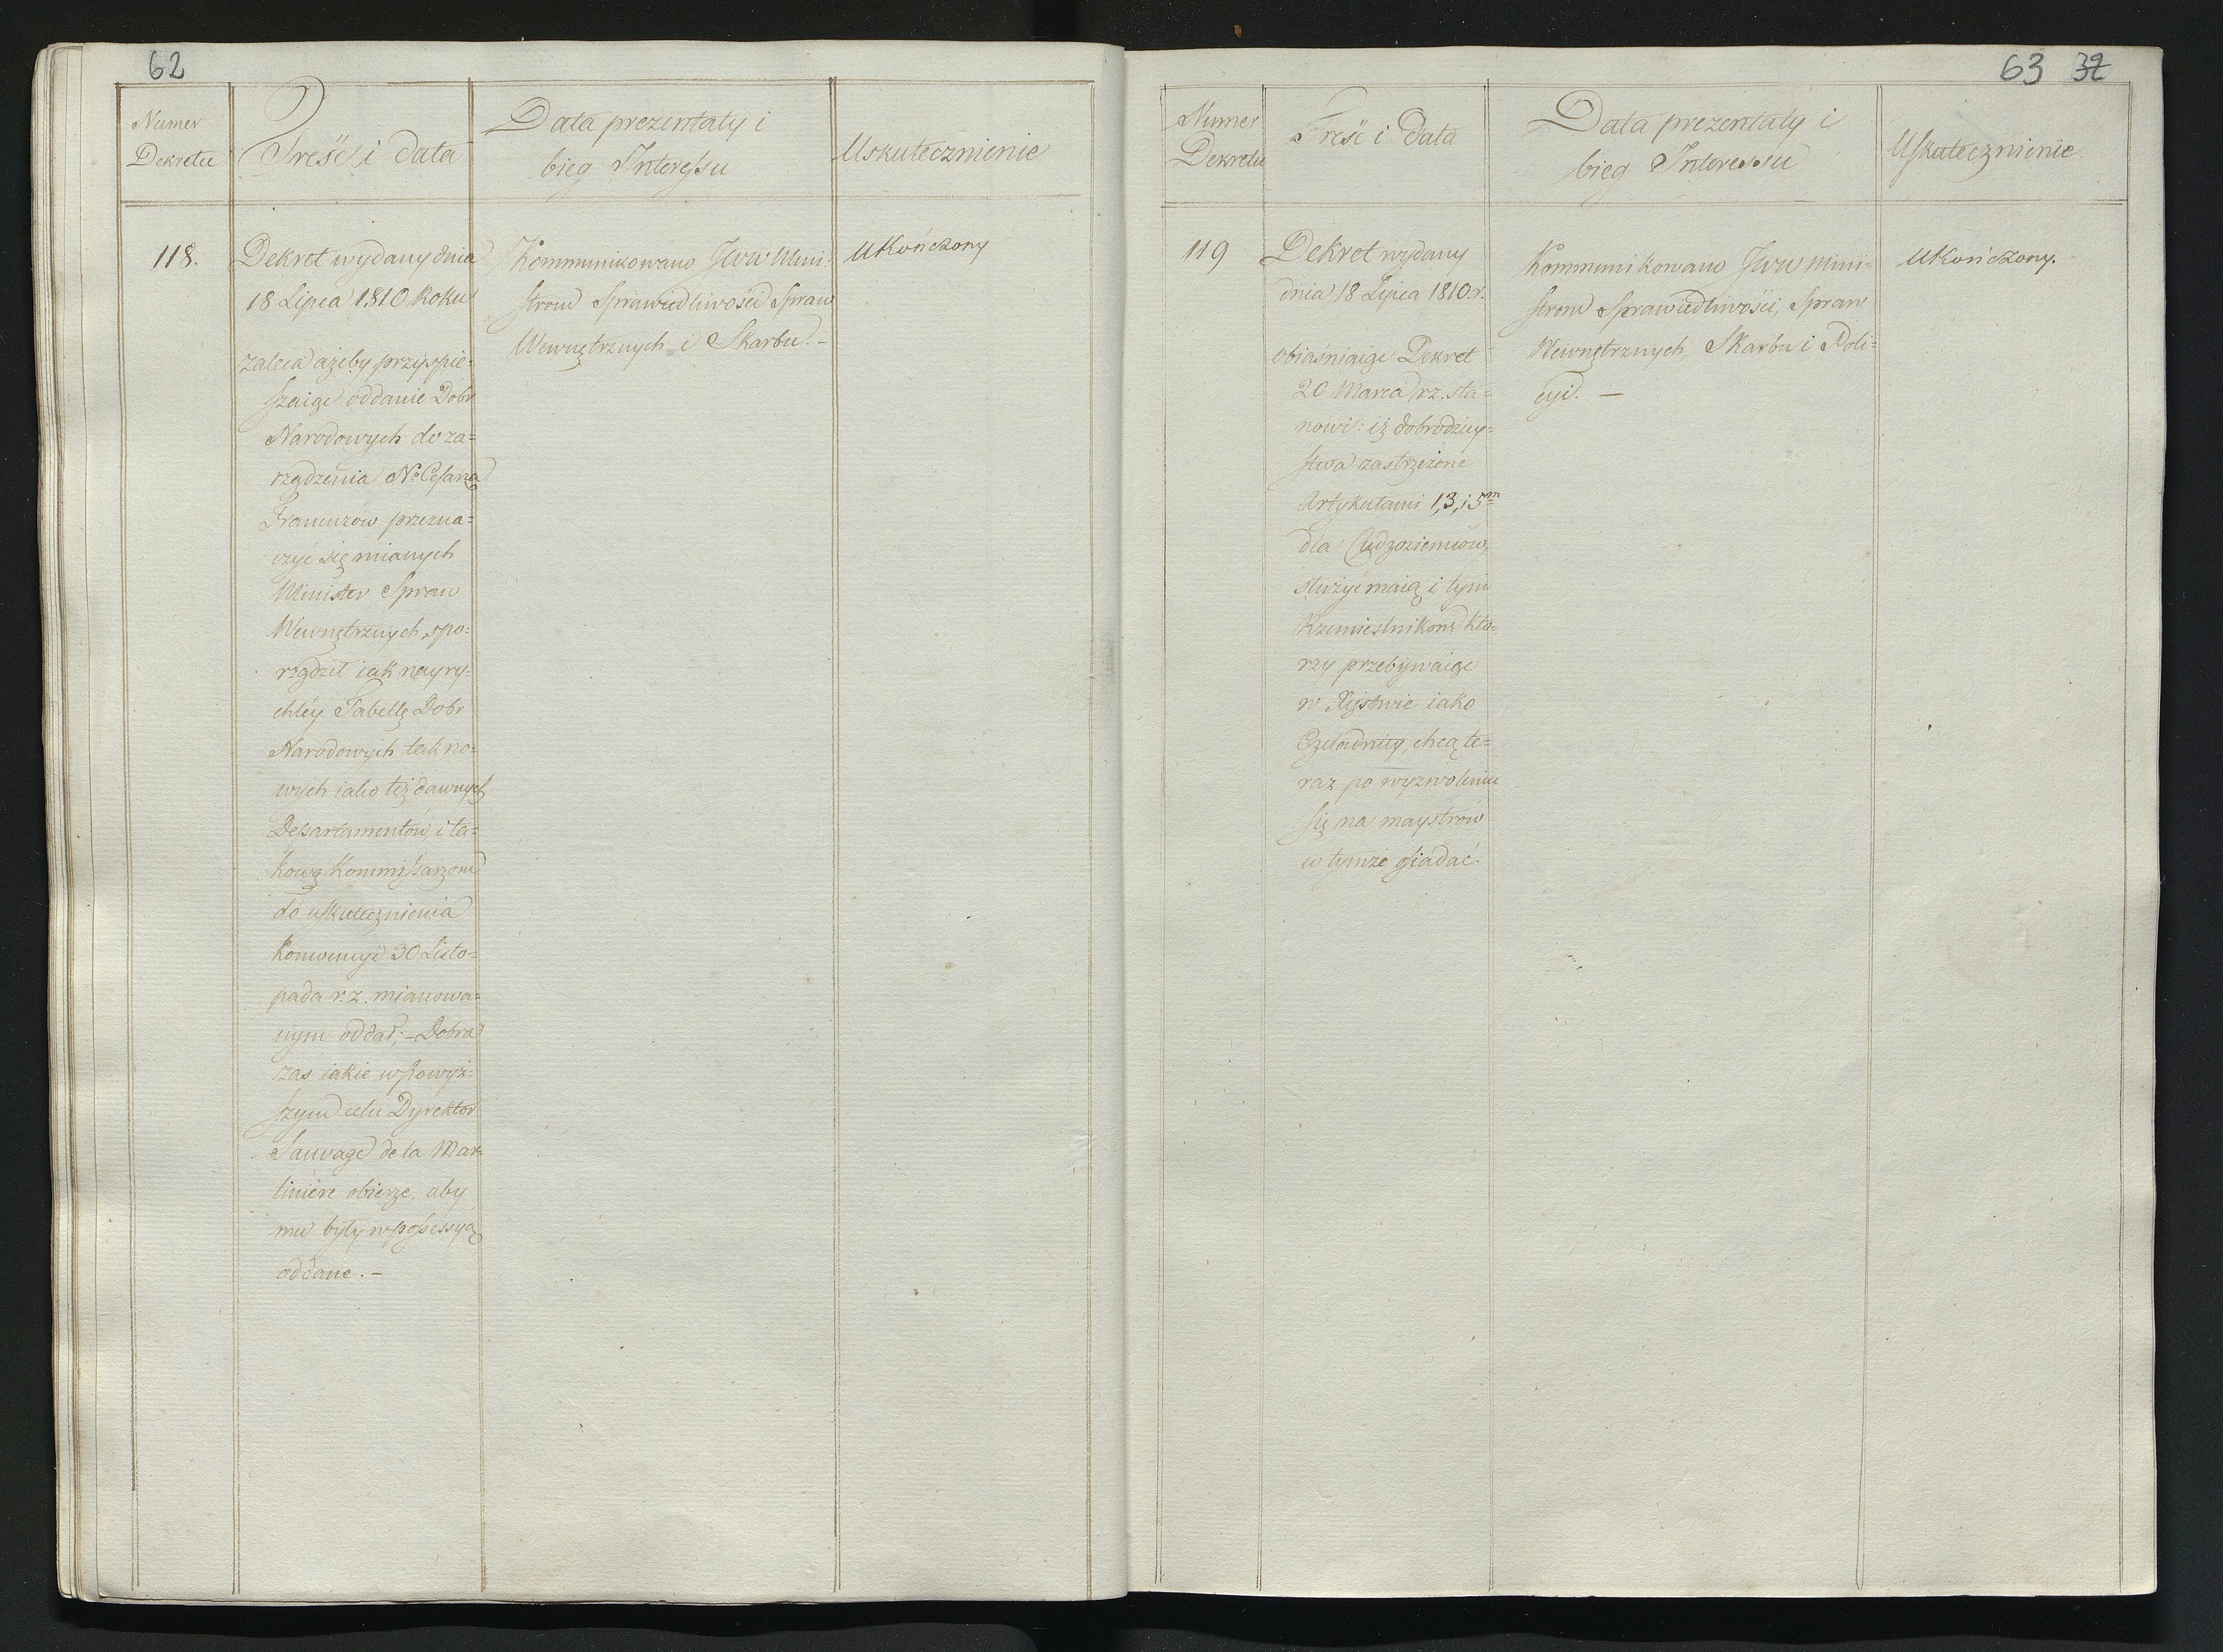 62
Numer
Dekretu
Treść i data
Data prezentaty i
bieg Interessu
Uskutecznienie
118.
Dekret wydany dnia
18 Lipca 1810 Roku
zaleca ażeby przyspie=
szaiąc oddanie Dobr
Narodowych do za=
rządzenia N. Cesarza
Francuzow przezna=
czyć się mianych
Minister Spraw
Wewnętrznych, spo=
rządził iak nayry=
chley Tabellę Dobr
Narodowych tak no=
wych iako też dawnych
Departamentów, i ta=
kową Kommissarzom
do uskutecznienia
Konwencyi 30 Listo=
pada r. z. mianowa=
nym oddał; – Dobra
zas iakie w powyż=
szym celu Dyrektor
Sauvage de la Mar=
tiniere obierze, aby
mu były w possessyą
oddane. –
Kommunikowano JWW Mini=
strom Sprawiedliwości Spraw
Wewnętrznych i Skarbu. –
Ukończony
63 32
Numer
Dekretu
Treść i data
Data prezentaty i
bieg Interessu
Uskutecznienie
119
Dekret wydany
dnia 18 Lipca 1810. r.
obiaśniaiąc Dekret
20 Marca r. z. sta=
nowi: iż dobrodziey=
stwa zastrzeżone
Artykułami 1, 3, i 5m
dla Cudzoziemców,
służyć maią i tym
Rzemieslnikom kto=
rzy przebywaiąc
w Xięstwie iako
Czeladnicy, chcą te=
raz po wyzwoleniu
się na maystrów
w tymże osiadać.
Kommunikowano JWW Mini=
strom Sprawiedliwości, Spraw
Wewnętrznych, Skarbu i Poli=
cyi. –
Ukończony.